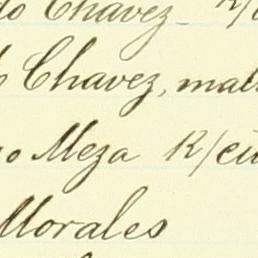 do Chavez R/
Chavez, mat
o Meza R/ciu
Morales